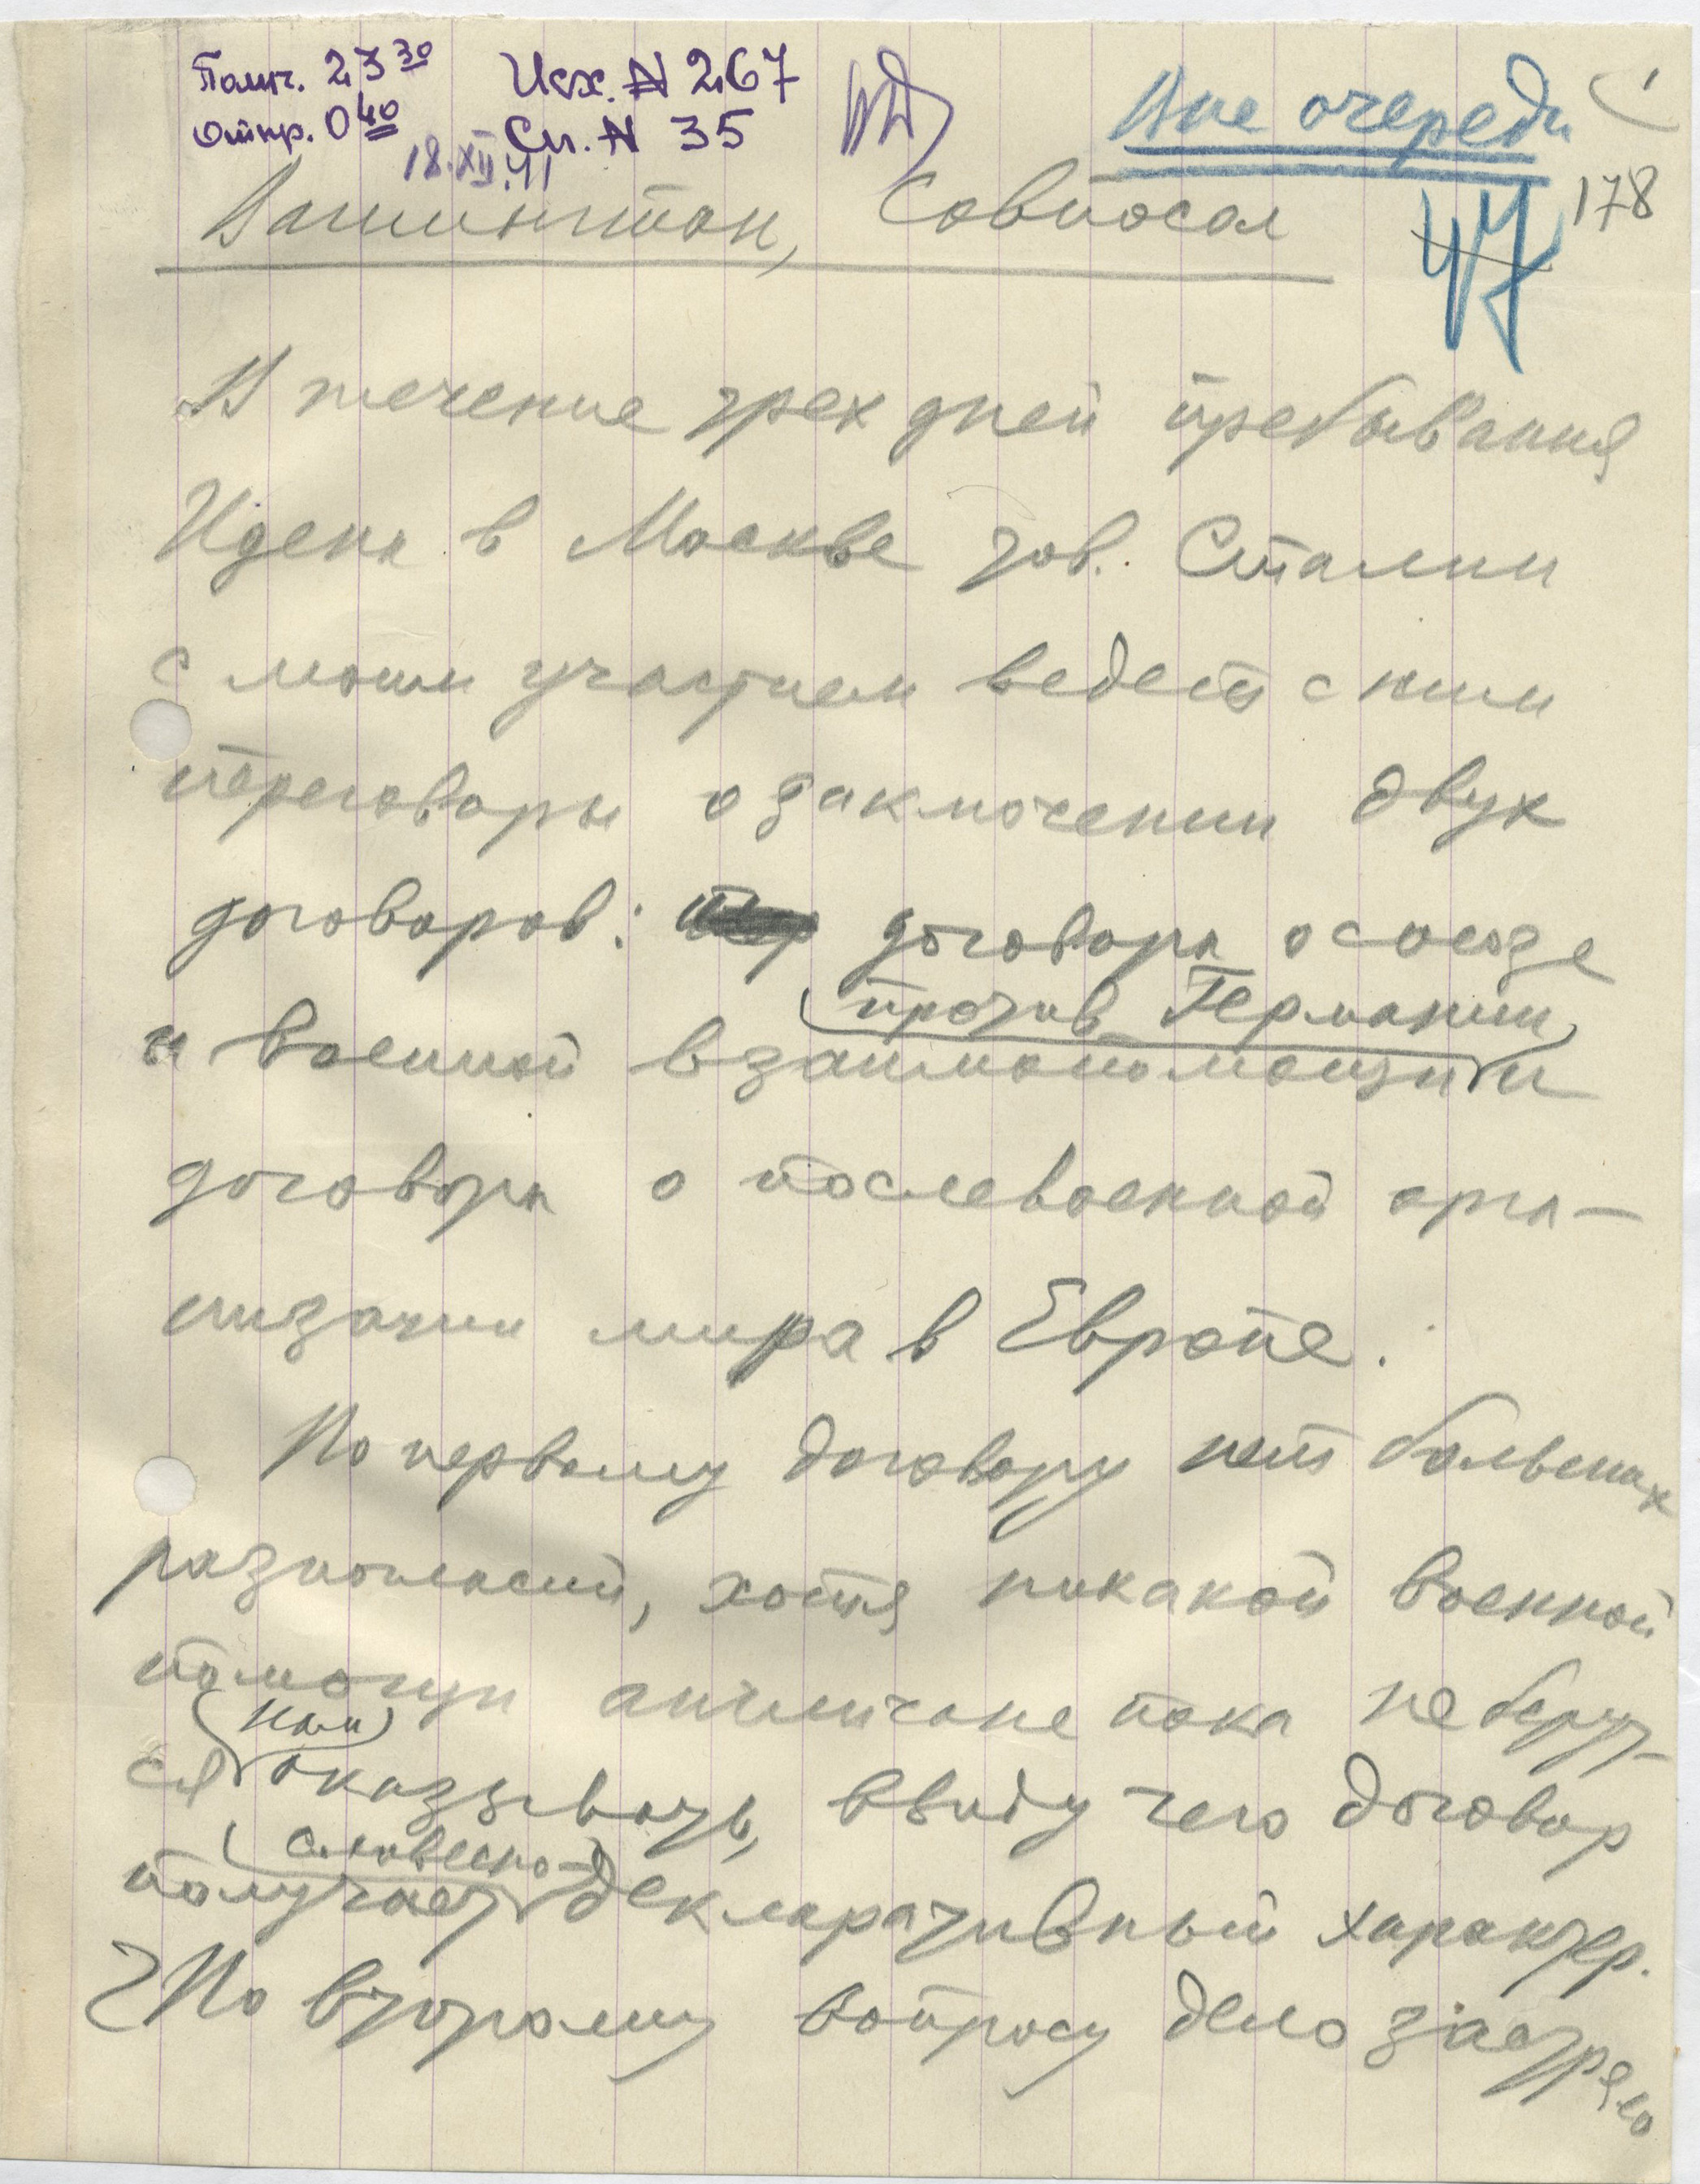 Получ. 23 30 Исх. № 267
Отпр. 0 40 Сп. № 35
18.XII.41
Вне очереди
178
47
Вашингтон, Совпосол
В течение трех дней пребывания
Идена в Москве тов. Сталин
с моим участием ведет с ним
переговоры о заключении двух
договоров: договора о союзе
против Германии
и военной взаимопомощи и
договора о послевоенной орга-
низации мира в Европе.
По первому договору нет больших
разногласий, хотя никакой военной
помощи англичане пока не берут-
нам
ся оказывать, ввиду чего договор
словесно-
получает декларативный характер.
По второму вопросу дело застряло